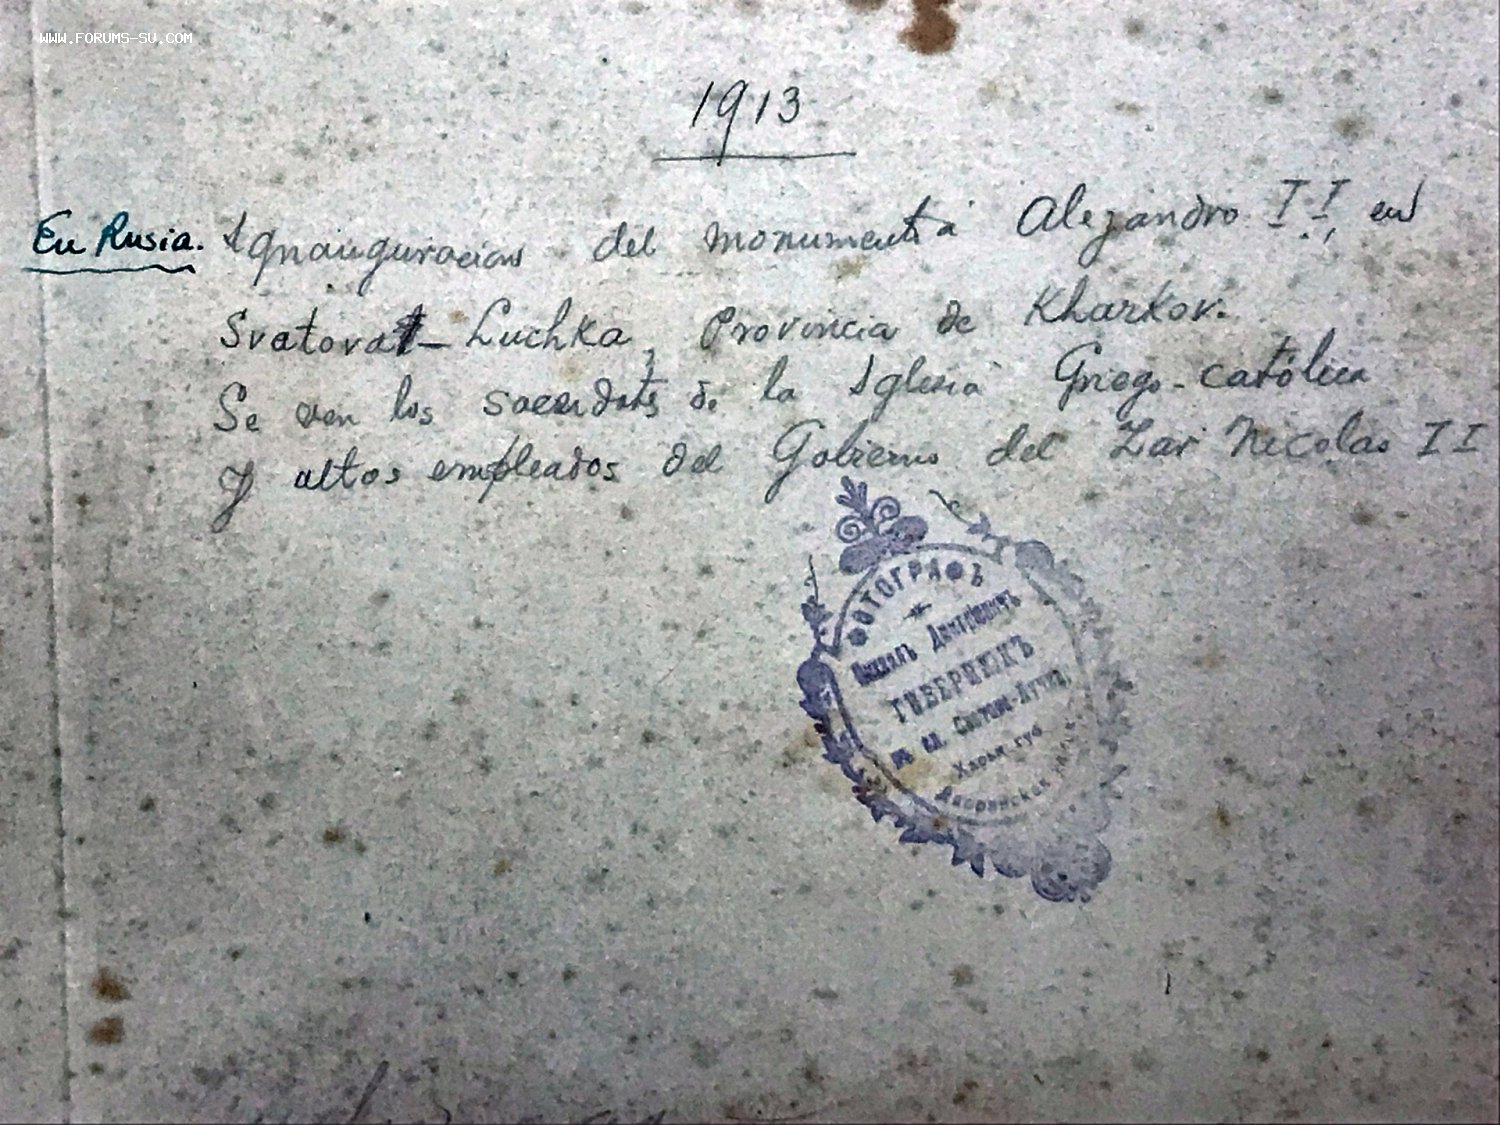 WWW.FORUMS-SU.COM
1913
En Rusia. Ignauguracion del monumento a Alejandro II, en
Svatovat-Luchka, Provincia de Kharkov.
Se ven los sacerdotes de la Iglesia Griego-católica
y altos empleados del Gobierno del Zar Nicolas II
ФОТОГРАФЪ
Дмитріевичъ
ГИВЕРЧУКЪ
въ сл. Сватова-Лучка,
Харьк. губ.